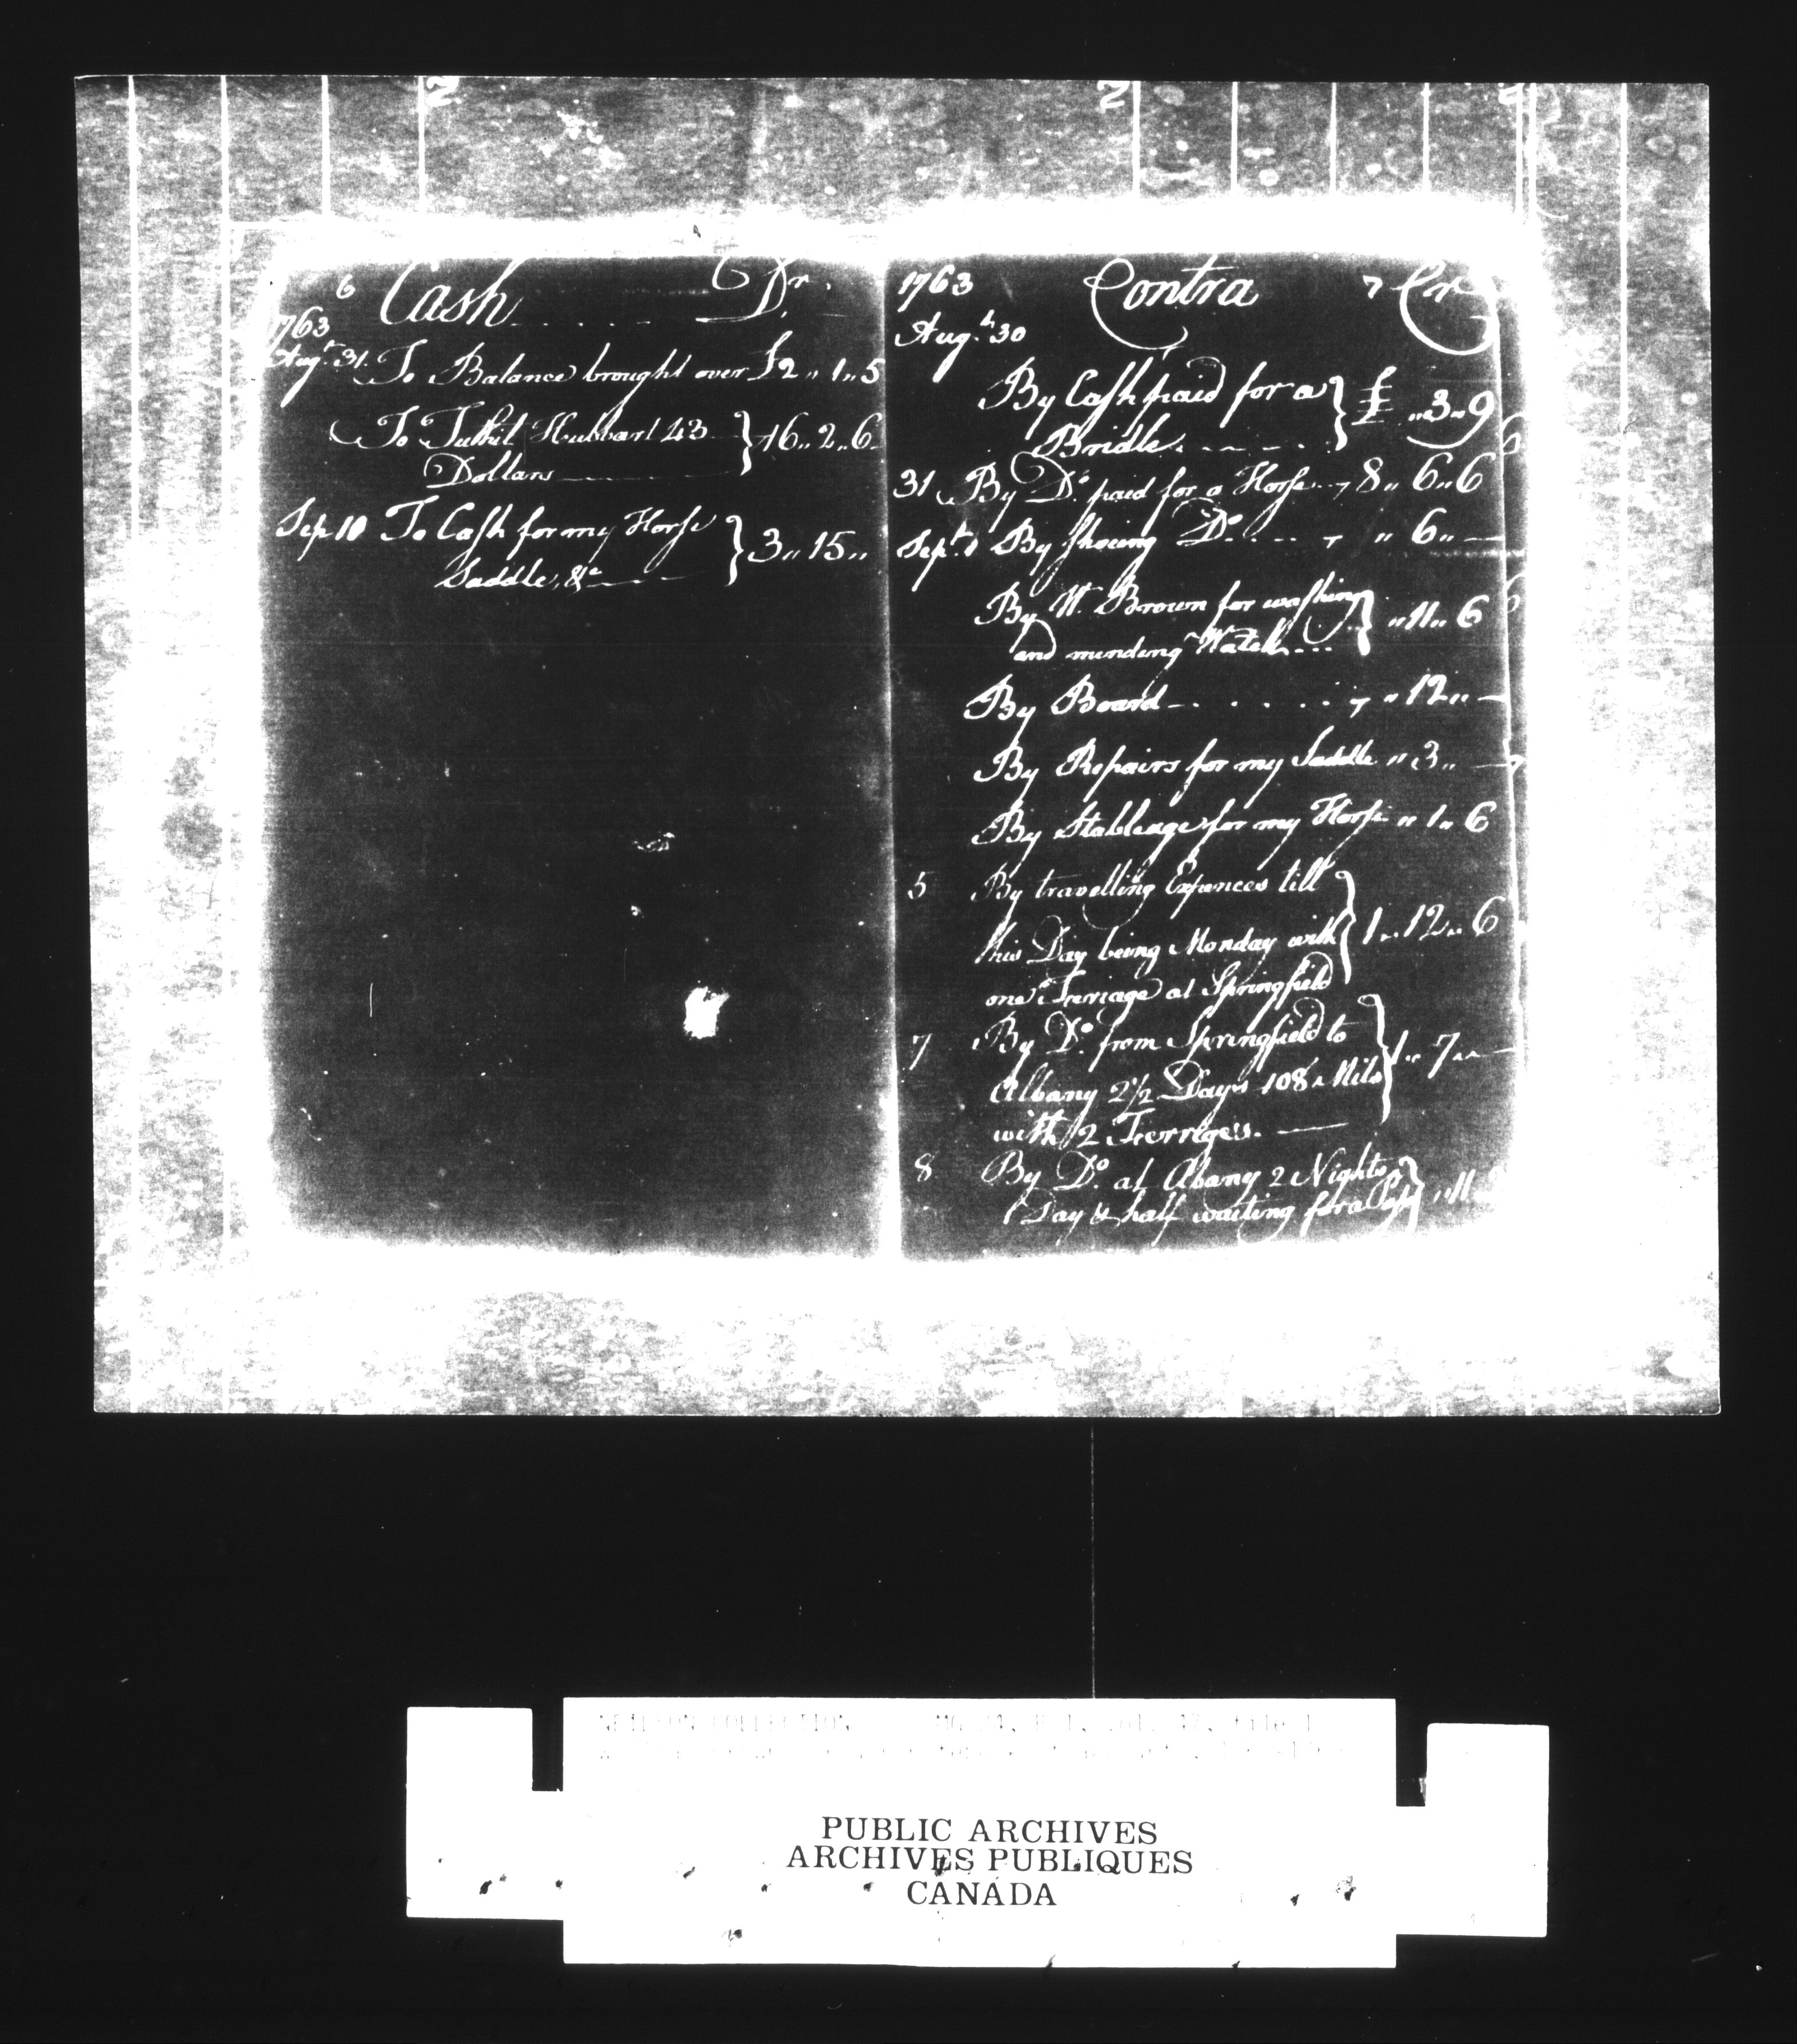 6 Cash . . . . . Dr.
1763
Augt. 31. To Balance brought over £2 „ 1 „ 5
To Tuthil Hubbart 43 } 16 „ 2 „ 6
Dollars
Sep 10 To Cash for my Horse } 3 „ 15 „
Saddle, &c
1763 Contra 7 Cr
Augt. 30
By Cash paid for a } £ „ 3 „ 9
Bridle . . . .
31 By Do. paid for a Horse 8 „ 6 „ 6
Sept. 1 By shoeing Do. . . . „ 6 „ —
By W. Brown for washing } „ 11 „ 6
and mending Watch . . .
By Board . . . . . „ 12 „ —
By Repairs for my Saddle „ 3 „ —
By Stableage for my Horse „ 1 „ 6
5 By travelling Expences till } 1 „ 12 „ 6
this Day being Monday with
one Ferriage at Springfield
7 By Do. from Springfield to } 1 „ 7 „ —
Albany 2 1/2 Days 108 Mils
with 2 Ferriges. —
8 By Do. at Albany 2 Nights } „ 11
1 Day & half waiting for a
PUBLIC ARCHIVES
ARCHIVES PUBLIQUES
CANADA